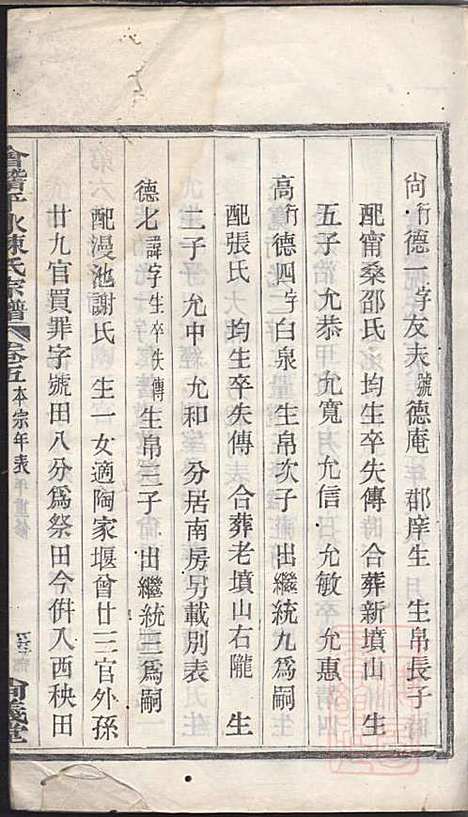 尚行德一字友夫號德庵 郡庠生 生帛長子
配甯桑邵氏 均生卒失傳 合葬新墳山 生
五子 允恭 允寬 允信 允敏 允惠
高行德四字白泉 生帛次子 出繼統九爲嗣
配張氏 均生卒失傳 合葬老墳山右隴 生
二子 允中 允和 分居南房另載別表
德七諱字生卒失傳 生帛三子 出繼統三爲嗣
配漫池謝氏 生一女適陶家堰曾廿三官外孫
廿九官買罪字號田八分爲祭田今併入西秧田
會稽平水陳氏宗譜 卷五 本宗年表 尚義堂